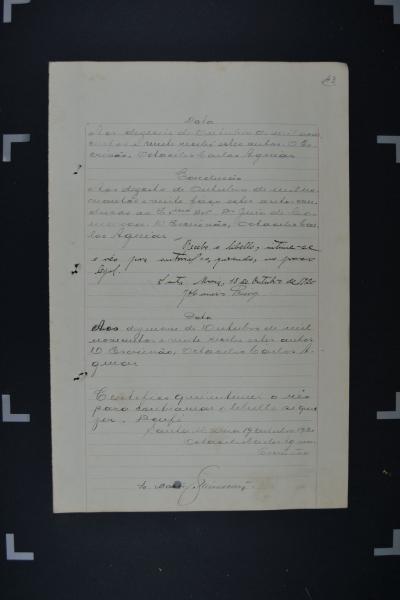 Data
Aos dezeseis de Outubro de mil nove
centos e vinte recebi estes autos. O Es-
crivão, Octacilio Carlos Aguiar
Conclusão
Aos dezoito de Outubro de mil no
vecentos e vinte faço estes autos con
clusos ao Exmo Snr. Dr. Juiz de
O Escrivão, Octacilio Car
los Aguiar
Recebo o libello, intime-se
o réo para contrarial-o, querendo, no prazo
legal.
18 de Outubro de 1920
Data
Aos dezenove de Outubro de mil
novecentos e vinte recebi estes autos
O Escrivão, Octacilio Carlos A-
guiar
Certifico que intimei o réo
para contrariar o libello se qui
zer. Dou fé
19 Outubro 1920
Octacilio Carlos Aguiar
Escrivão